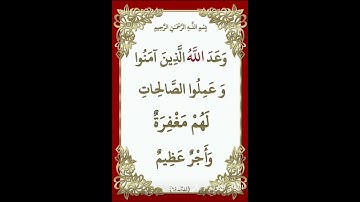 بِسْمِ اللَّهِ الرَّحْمَٰنِ الرَّحِيمِ
وَعَدَ اللَّهُ الَّذِينَ آمَنُوا
وَعَمِلُوا الصَّالِحَاتِ
لَهُمْ مَغْفِرَةٌ
وَأَجْرٌ عَظِيمٌ